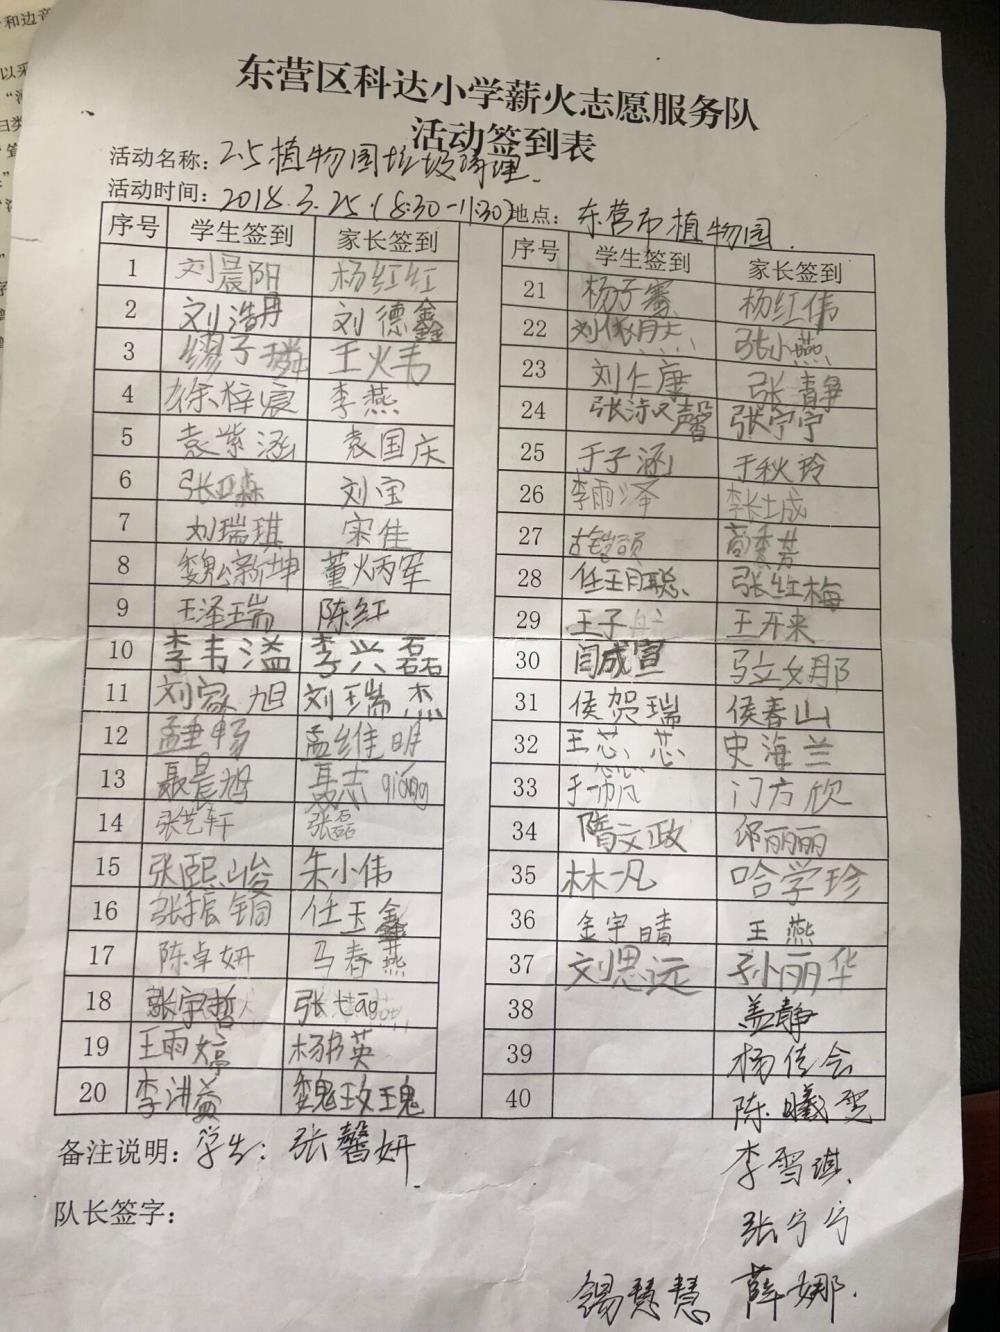 东营区科达小学薪火志愿服务队
活动签到表
活动名称：2.5植物园垃圾清理.
活动时间：2018.3.25.(8:30-11:30) 地点：东营市植物园.
序号 学生签到 家长签到
1 刘晨阳 杨红红
2 刘浩丹 刘德鑫
3 缪子璘 王火韦
4 徐梓宸 李燕
5 袁紫涵 袁国庆
6 张亚森 刘宝
7 刘瑞琪 宋佳
8 魏新坤 董炳军
9 王泽瑞 陈红
10 李韦溢 李兴磊
11 刘家旭 刘瑞杰
12 孟畅 孟维明
13 聂晨旭 聂志qiáng
14 张艺轩 张磊
15 张熙峻 朱小伟
16 张振铜 任玉鑫
17 陈卓妍 马春燕
18 张宇哲 张
19 王雨婷 杨书英
20 李洪益 魏玫瑰
序号 学生签到 家长签到
21 杨子骞 杨红伟
22 刘依 张小燕
23 刘仁康 张静
24 张淑馨 张宁宁
25 于子涵 于秋玲
26 李雨泽 李长城
27 秀芳
28 任玥聪 张红梅
29 王子 王开来
30 闫成宣 马立娜
31 侯贺瑞 侯春山
32 王芯芯 史海兰
33 于一帆 门方欣
34 隋文政 邱丽丽
35 林一凡 哈学珍
36 金宇晴 王燕
37 刘思远 孙丽华
38 盖静
39 杨佳会
40 陈曦
备注说明：学生：张馨妍
李雪琪
队长签字：
张宁宁
慧慧 薛娜.